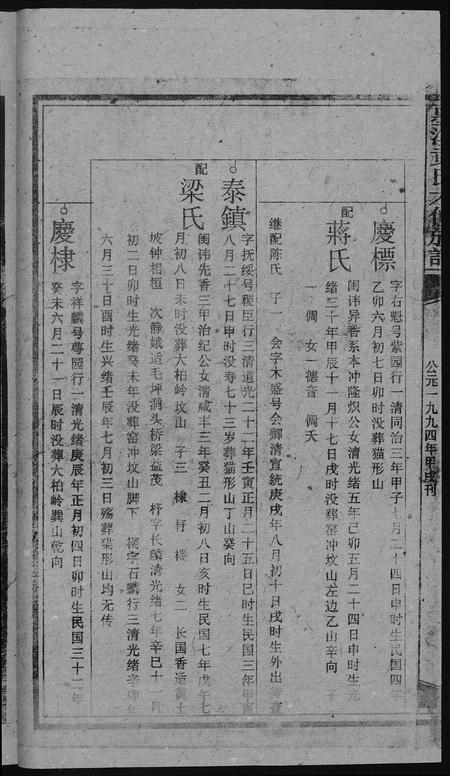 公元一九九四年甲戌刊
慶標
字右魁号紫园行一清同治三年甲子七月二十四日申时生民国四年
乙卯六月初七日卯时没葬猫形山
配
蔣氏
闺讳异香系本冲隆炽公女清光绪五年己卯五月二十四日申时生光
绪三十年甲辰十一月十七日戌时没葬窑冲坟山左边乙山辛向
一 倜 女一德音 倜夭
继配陈氏 子一 会字木盛号会卿清宣统庚戌年八月初十日戌时生外出
泰鎮
字抚绥号稷臣行三清道光二十二年壬寅正月二十五日巳时生民国三年甲寅
八月二十七日申时没寿七十三岁葬猫形山丁山癸向
配
梁氏
闺讳先香三甲治纪公女清咸丰三年癸丑二月初八日亥时生民国七年戊午七
月初八日未时没葬大柏岭坟山 子三 棣 杍 楼 女二 长国香适黄土
坡钟相桓 次静娥适毛坪洞头桥梁益茂 杍字长麟清光绪七年辛巳十 月
初二日卯时生光绪癸未年没葬窑冲坟山脚下 楼字石麟行三清光绪辛卯年
六月三十日酉时生 绪壬辰年七月初三日殇葬猫形山均无传
慶棣
字祥麟号粤园行一清光绪庚辰年正月初四日卯时生民国三十二年
癸未六月二十一日辰时没葬大柏岭巽山乾向